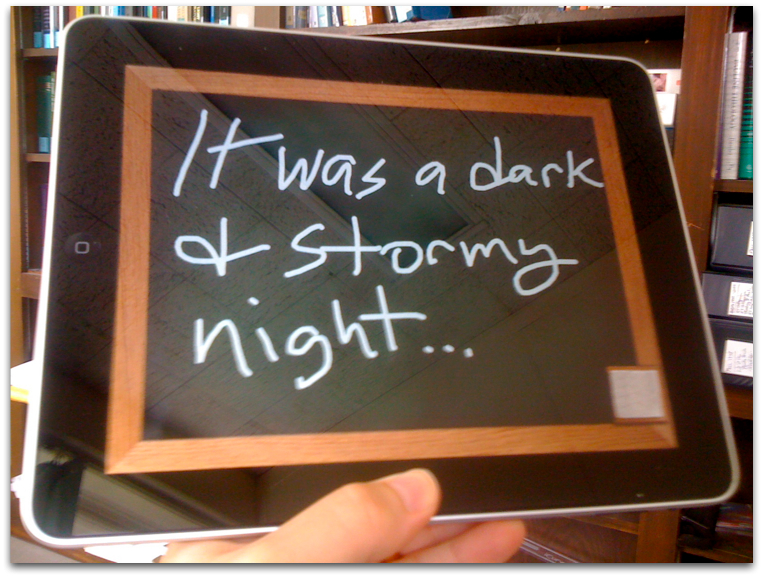 It was a dark
& stormy
night...